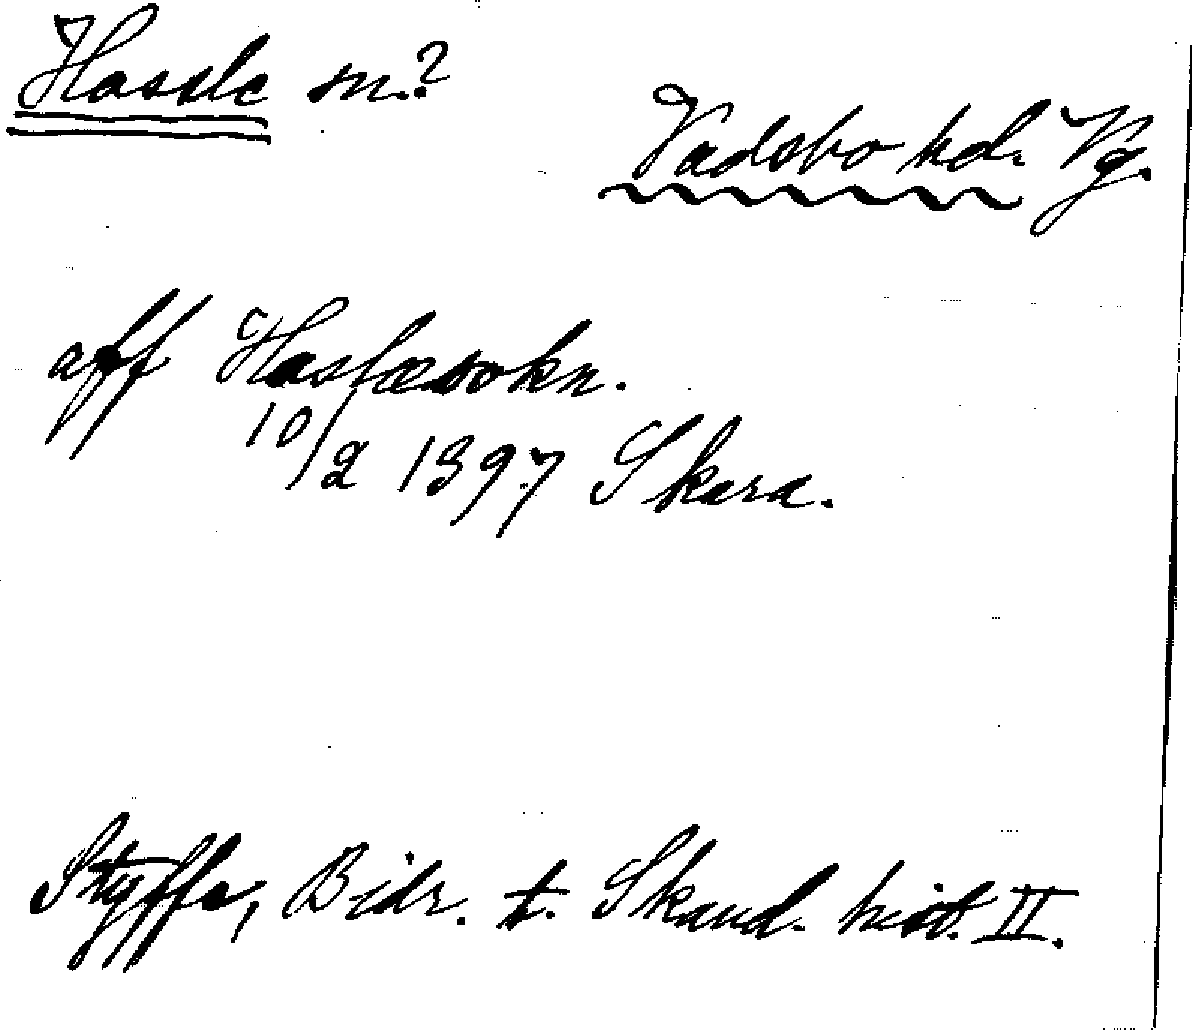 Hassle sn.?
Vadsbo hd. Vg.
aff Haslæsokn.
10/2 1397 Skara.
Styffe, Bidr. t. Skand. hist. II.